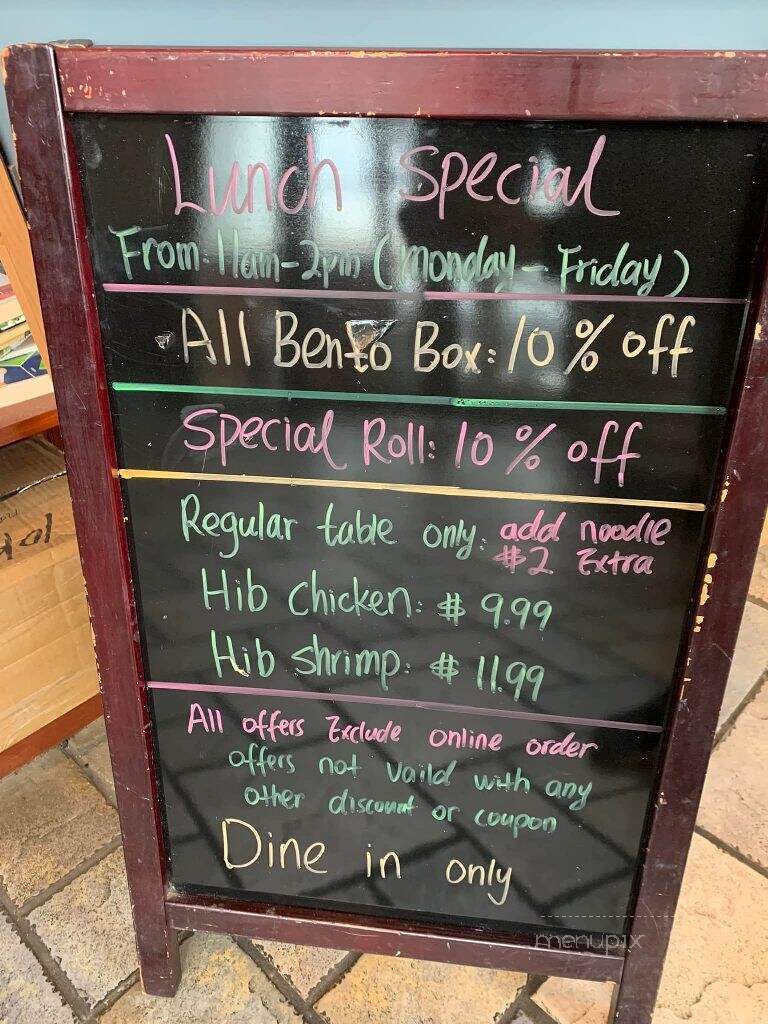 Lunch Special
From: 11am-2pm (Monday - Friday)
All Bento Box: 10% off
Special Roll: 10% off
Regular table only: add noodle
$2 Extra
Hib chicken: $ 9.99
Hib shrimp: $ 11.99
All offers Exclude online order
offers not Vaild with any
other discount or coupon
Dine in only
menupix